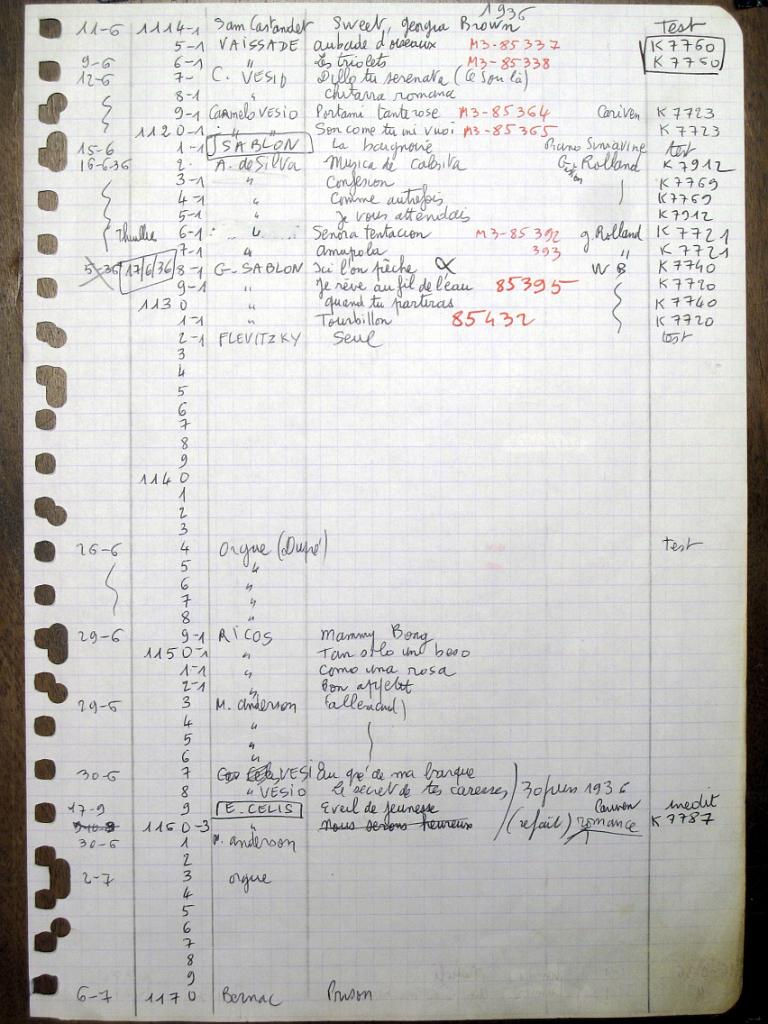 1936
11-6 1114-1 Sam Castandet Sweet, georgia Brown Test
5-1 VAISSADE aubade d'oiseaux M3-85337 K 7760
9-6 6-1 " Les triolets M3-85338 K 7750
12-6 7- C. VESIO Dille tu serenata (le sou là)
8-1 chitarra romana
9-1 Carmelo VESIO Portami tante rose M3-85364 Cariven K 7723
1120-1 " " Son come tu mi vuoi M3-85365 K 7723
15-6 1-1 J SABLON La baignoire Piano test
16-6-36 2- A. de Silva Musica de K 7912
3-1 " Confesion Rolland K 7769
4-1 " Comme autrefois K 7769
5-1 " Je vous attendais K 7912
6-1 " Senora tentacion M3-85392 g. Rolland K 7721
7-1 " amapola 393 " K 7721
17/6/36 8-1 G. SABLON Ici l'on pêche W B K 7740
9-1 " Je rêve au fil de l'eau 85395 K 7720
1130 " quand tu partiras K 7740
1-1 " Tourbillon 85432 K 7720
2-1 PLEVITZKY Seul test
3
4
5
6
7
8
9
1140
1
2
3
26-6 4 Orgue (Dupré) test
5 "
6 "
7 "
8 "
29-6 9-1 RICOS Mammy Bong
1150-1 " Tan solo un beso
1-1 " Como una rosa
2-1 " Bon appetit
29-6 3 M. anderson (allemand)
4 "
5 "
6 "
30-6 7 VESIO Au gré de ma barque
8 " VESIO le secret de tes caresses 30 juin 1936
17-9 9 E. CELIS Eveil de jeunesse Cariven inedit
1160-3 " Nous serons heureux (refait) romance K 7787
30-6 1 M. anderson
2
2-7 3 orgue
4
5
6
7
8
9
6-7 1170 Bernac Prison